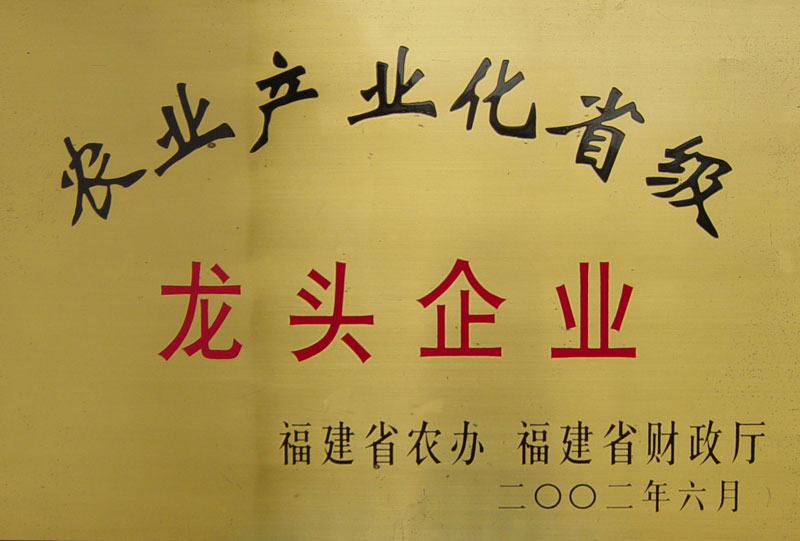 农业产业化省级
龙头企业
福建省农办 福建省财政厅
二〇〇二年六月